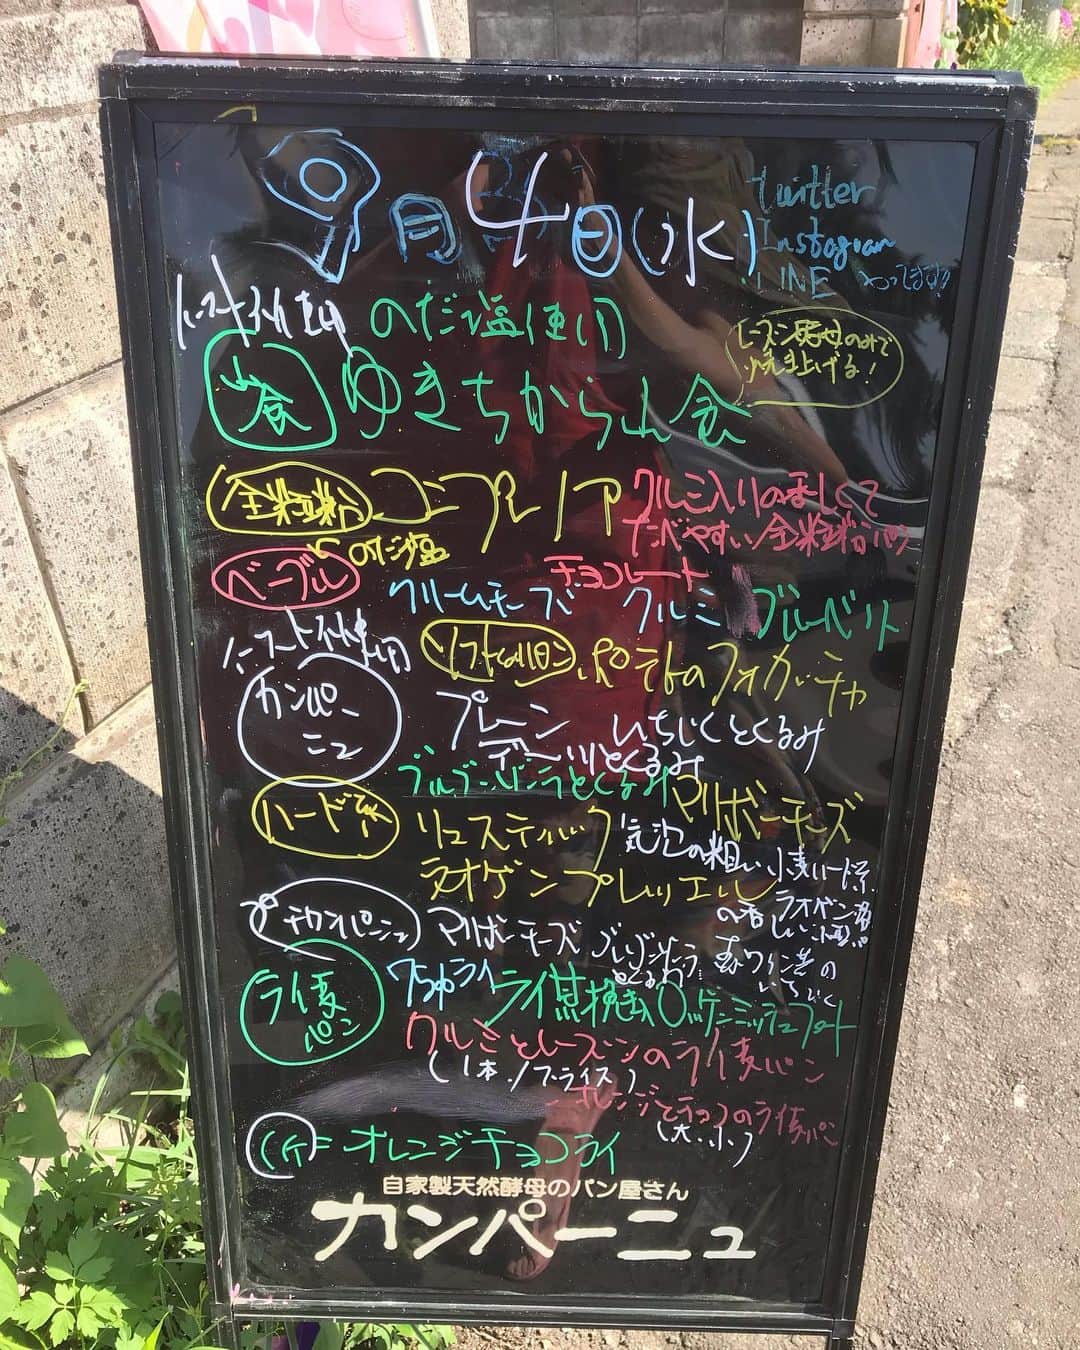 9月4日(水)
twitter
Instagram
LINE やってます!!
イースト不使用 のだ塩使用
レーズン酵母のみで
焼き上げる!
山食 ゆきちから山食
全粒粉 コンプレ ノア
クルミ入りの香ばしくて
たべやすい全粒粉パン
のだ塩
ベーグル チョコレート
クリームチーズ クルミ ブルーベリー
イースト不使用
ソフト ポテトのフォカッチャ
カンパーニュ プレーン いちじくとくるみ
デーツとくるみ
とくるみ マリボーチーズ
ハード系 リュスティック 気泡の粗い小麦ハード系
ラオゲンプレッツェル
プチカンパーニュ マリボーチーズ
とくるみ 赤ワイン漬の
いちじく
ライ麦パン ライ麦
クルミとレーズンのライ麦パン
(1本・1/2スライス)
オレンジとチョコのライ麦パン
(大・小)
オレンジチョコライ
自家製天然酵母のパン屋さん
カンパーニュ